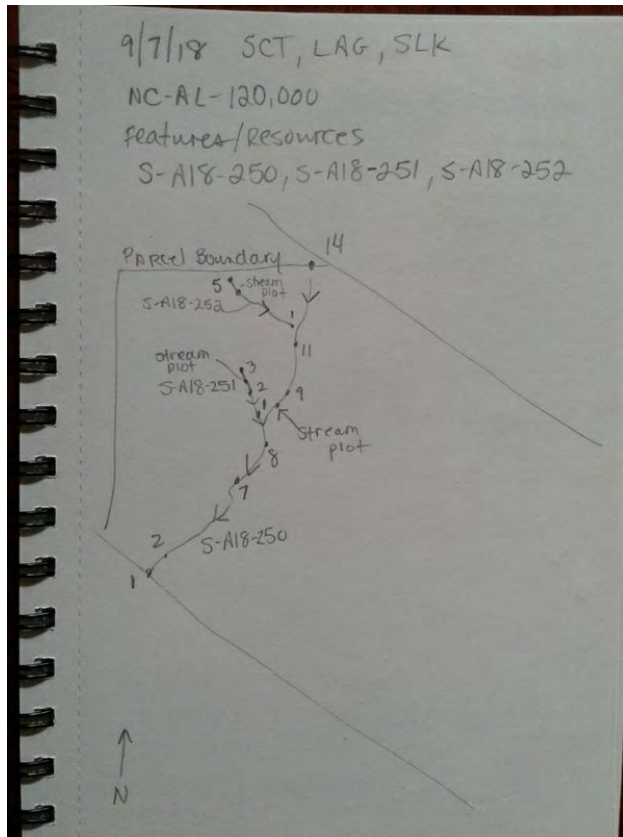 9/7/18 SCT, LAG, SLK
NC-AL-120,000
Features/Resources
S-A18-250, S-A18-251, S-A18-252
14
Parcel Boundary
5
stream
plot
S-A18-252
1
11
stream
plot
3
S-A18-251
2
1
9
Stream
plot
8
7
S-A18-250
2
1
N